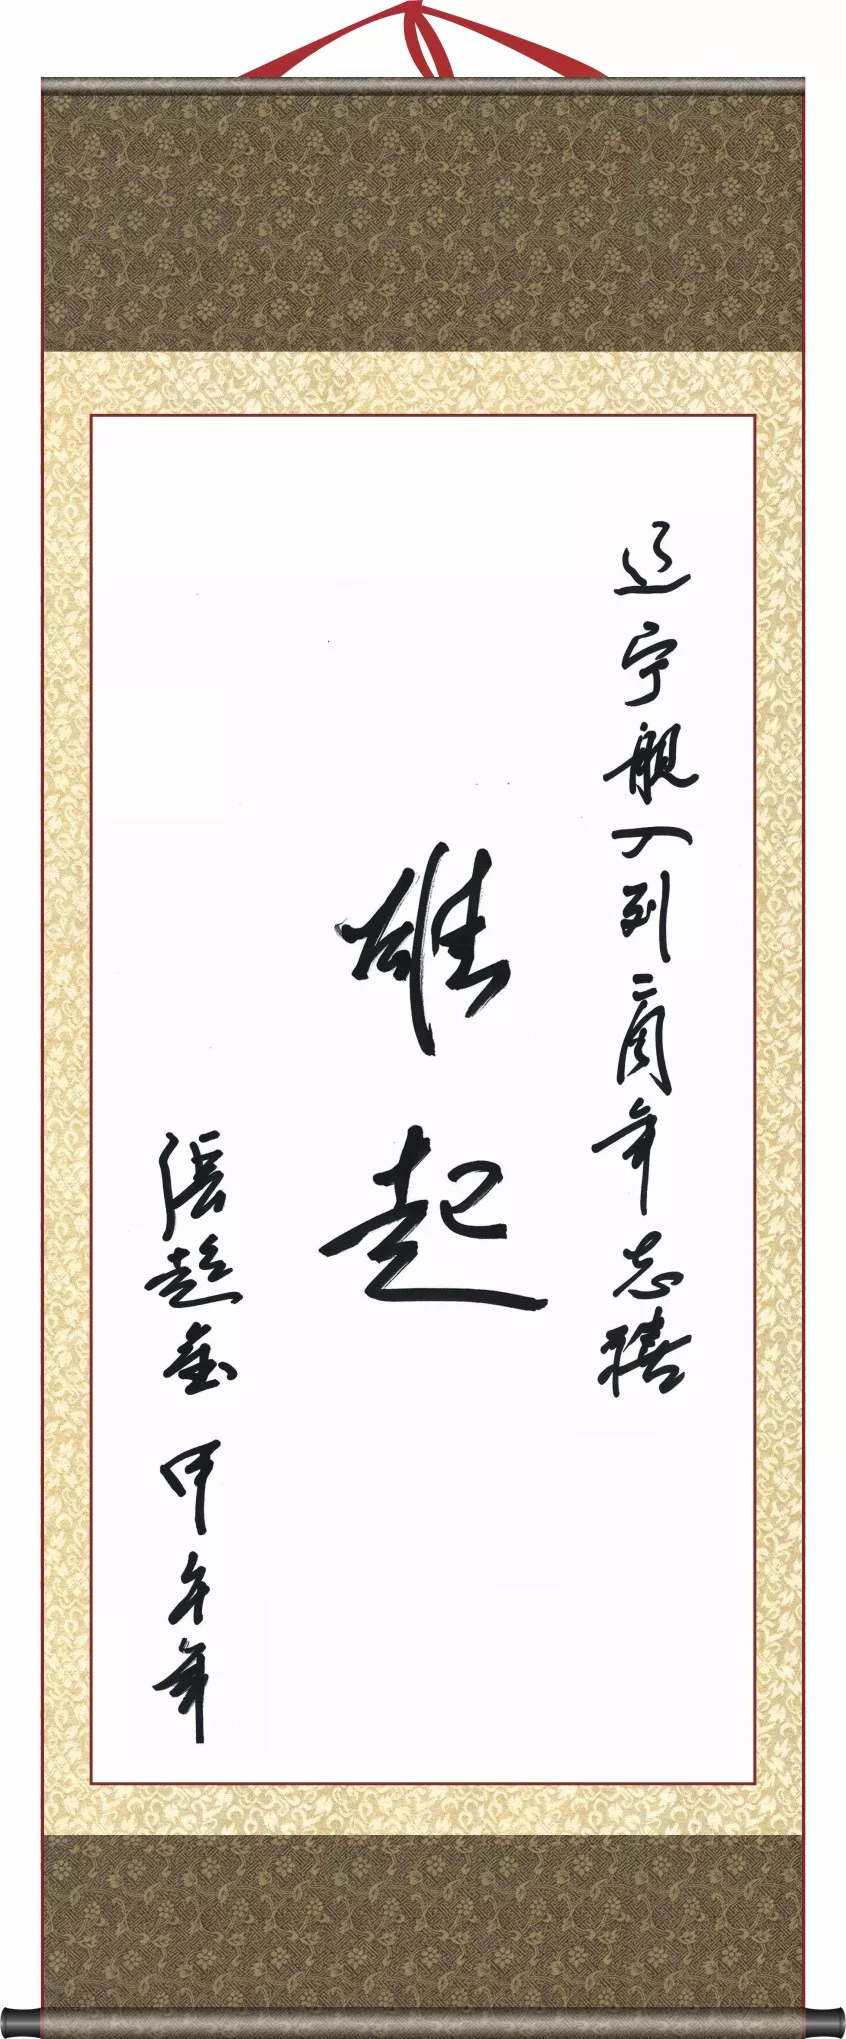 辽宁舰入列二周年志禧
雄起
张趁金 甲午年